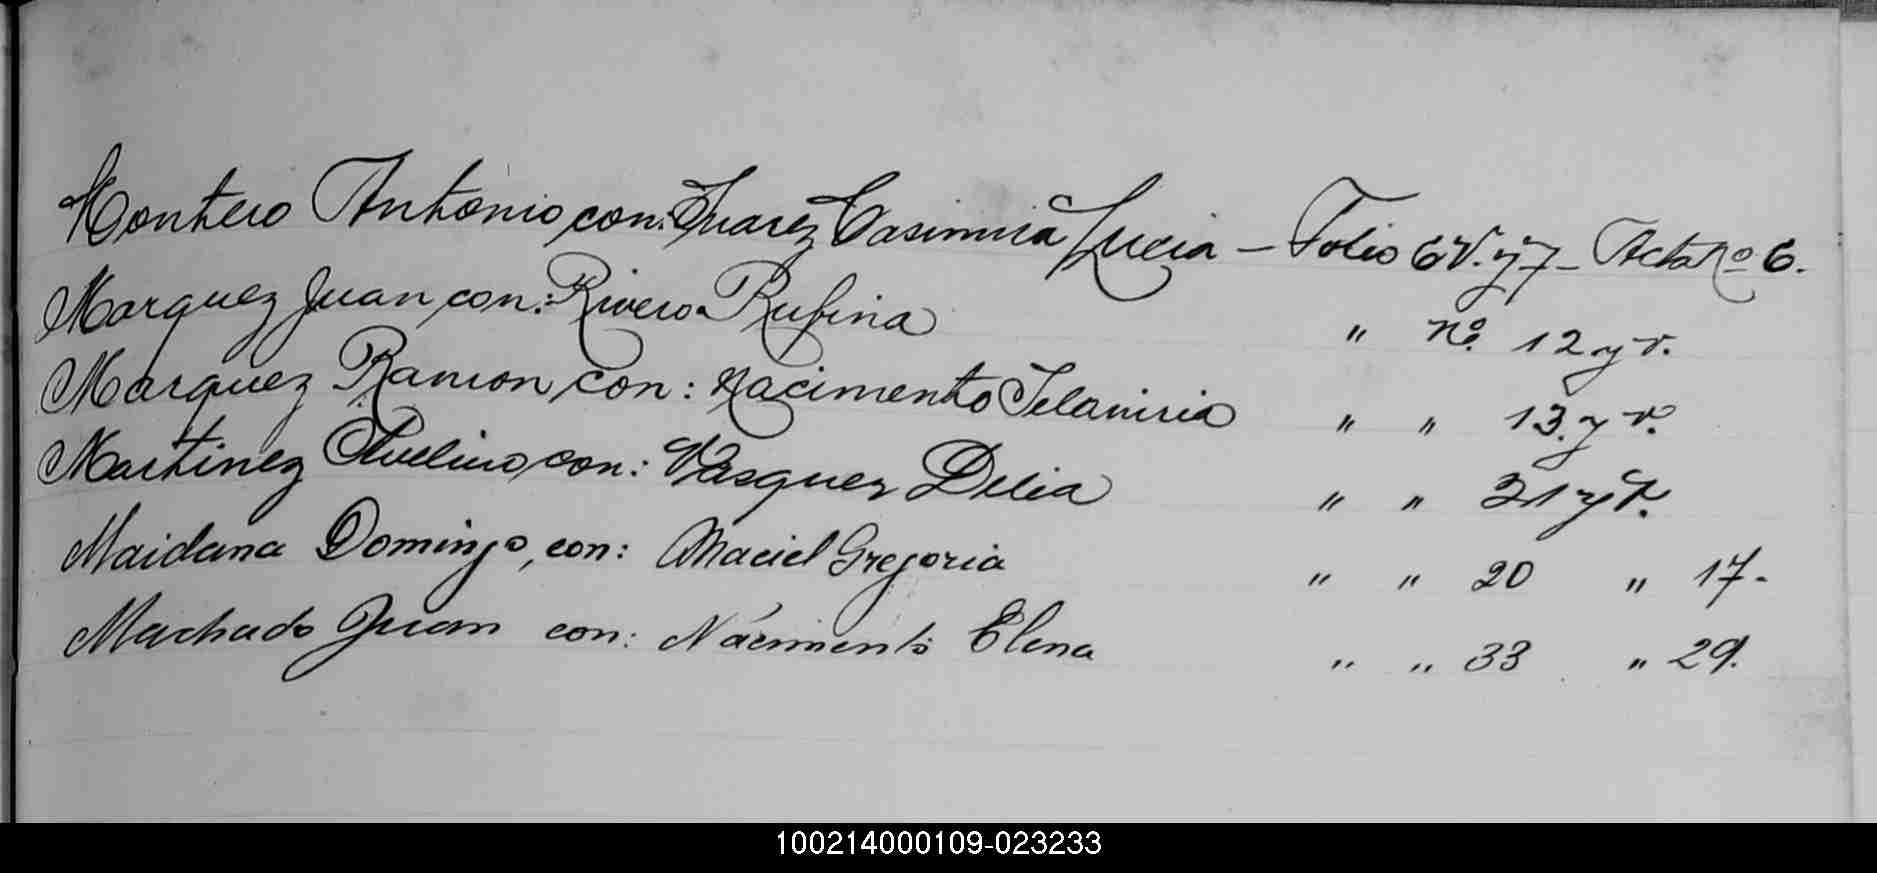 Montero Antonio con: Suarez Casimira Lucia – Folio 6 V. y 7 – Acta No 6.
Marquez Juan con: Rivero Rufina " No. 12 y v.
Marquez Ramon con: Nacimento " " 13. y v.
Martinez Avelino con: Vasquez Delia " " 21 y v.
Maidana Domingo, con: Maciel Gregoria " " 20 " 17-
Machado Juan con: Nacimento Elena " " 33 " 29.
100214000109-023233